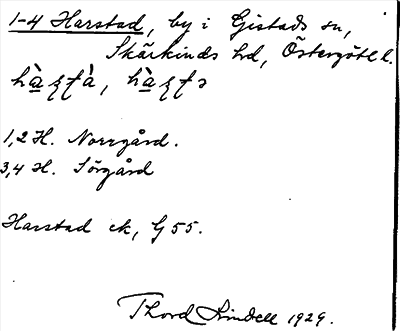 1-4 Harstad, by i Gistads sn,
Skärkinds hd, Östergötl l.
1,2 H. Norrgård.
3,4 H. Sörgård
Harstad ek, G 55.
Thord Lindell 1929.